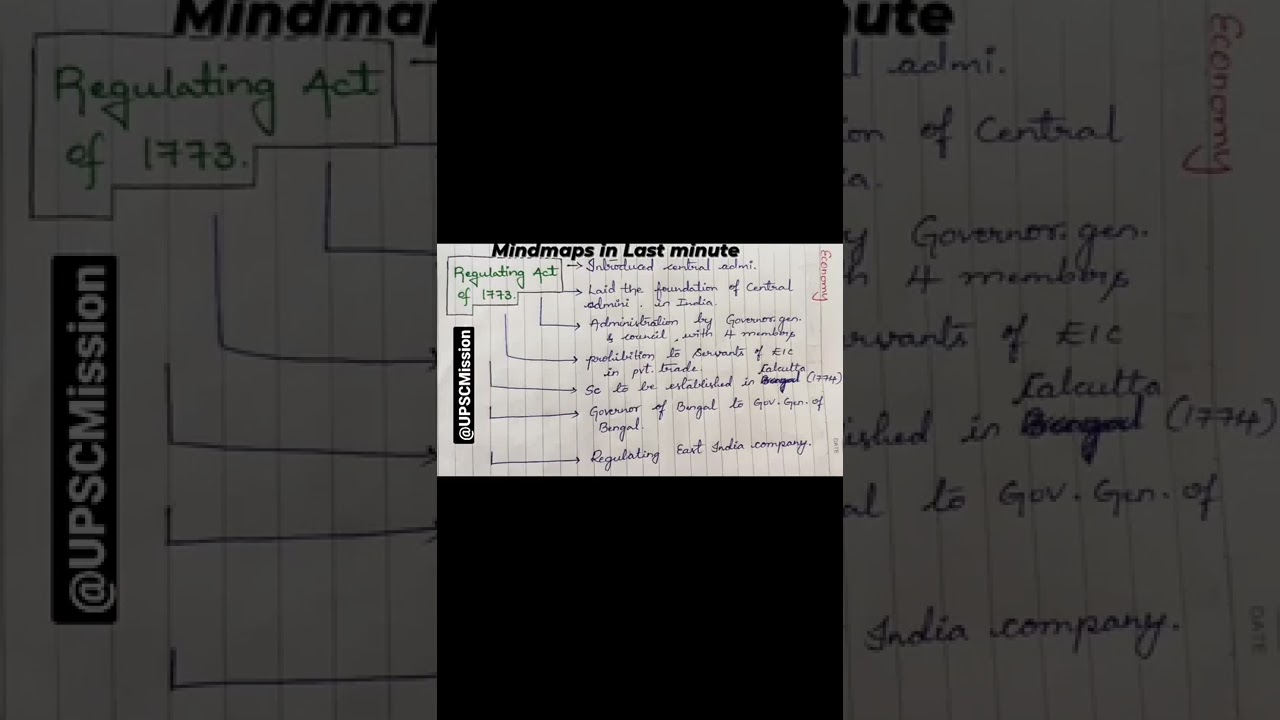 Mindmaps in Last minute
Economy
Regulating Act
of 1773.
Introduced central admi.
Laid the foundation of Central
admini. in India.
Administration by Governor.gen.
& council, with 4 members
prohibition to Servants of EIC
in pvt. trade.
Calcutta
Sc to be established in (1774)
Governor of Bengal to Gov. Gen. of
Bengal.
Regulating East India company.
@UPSCMission
DATE